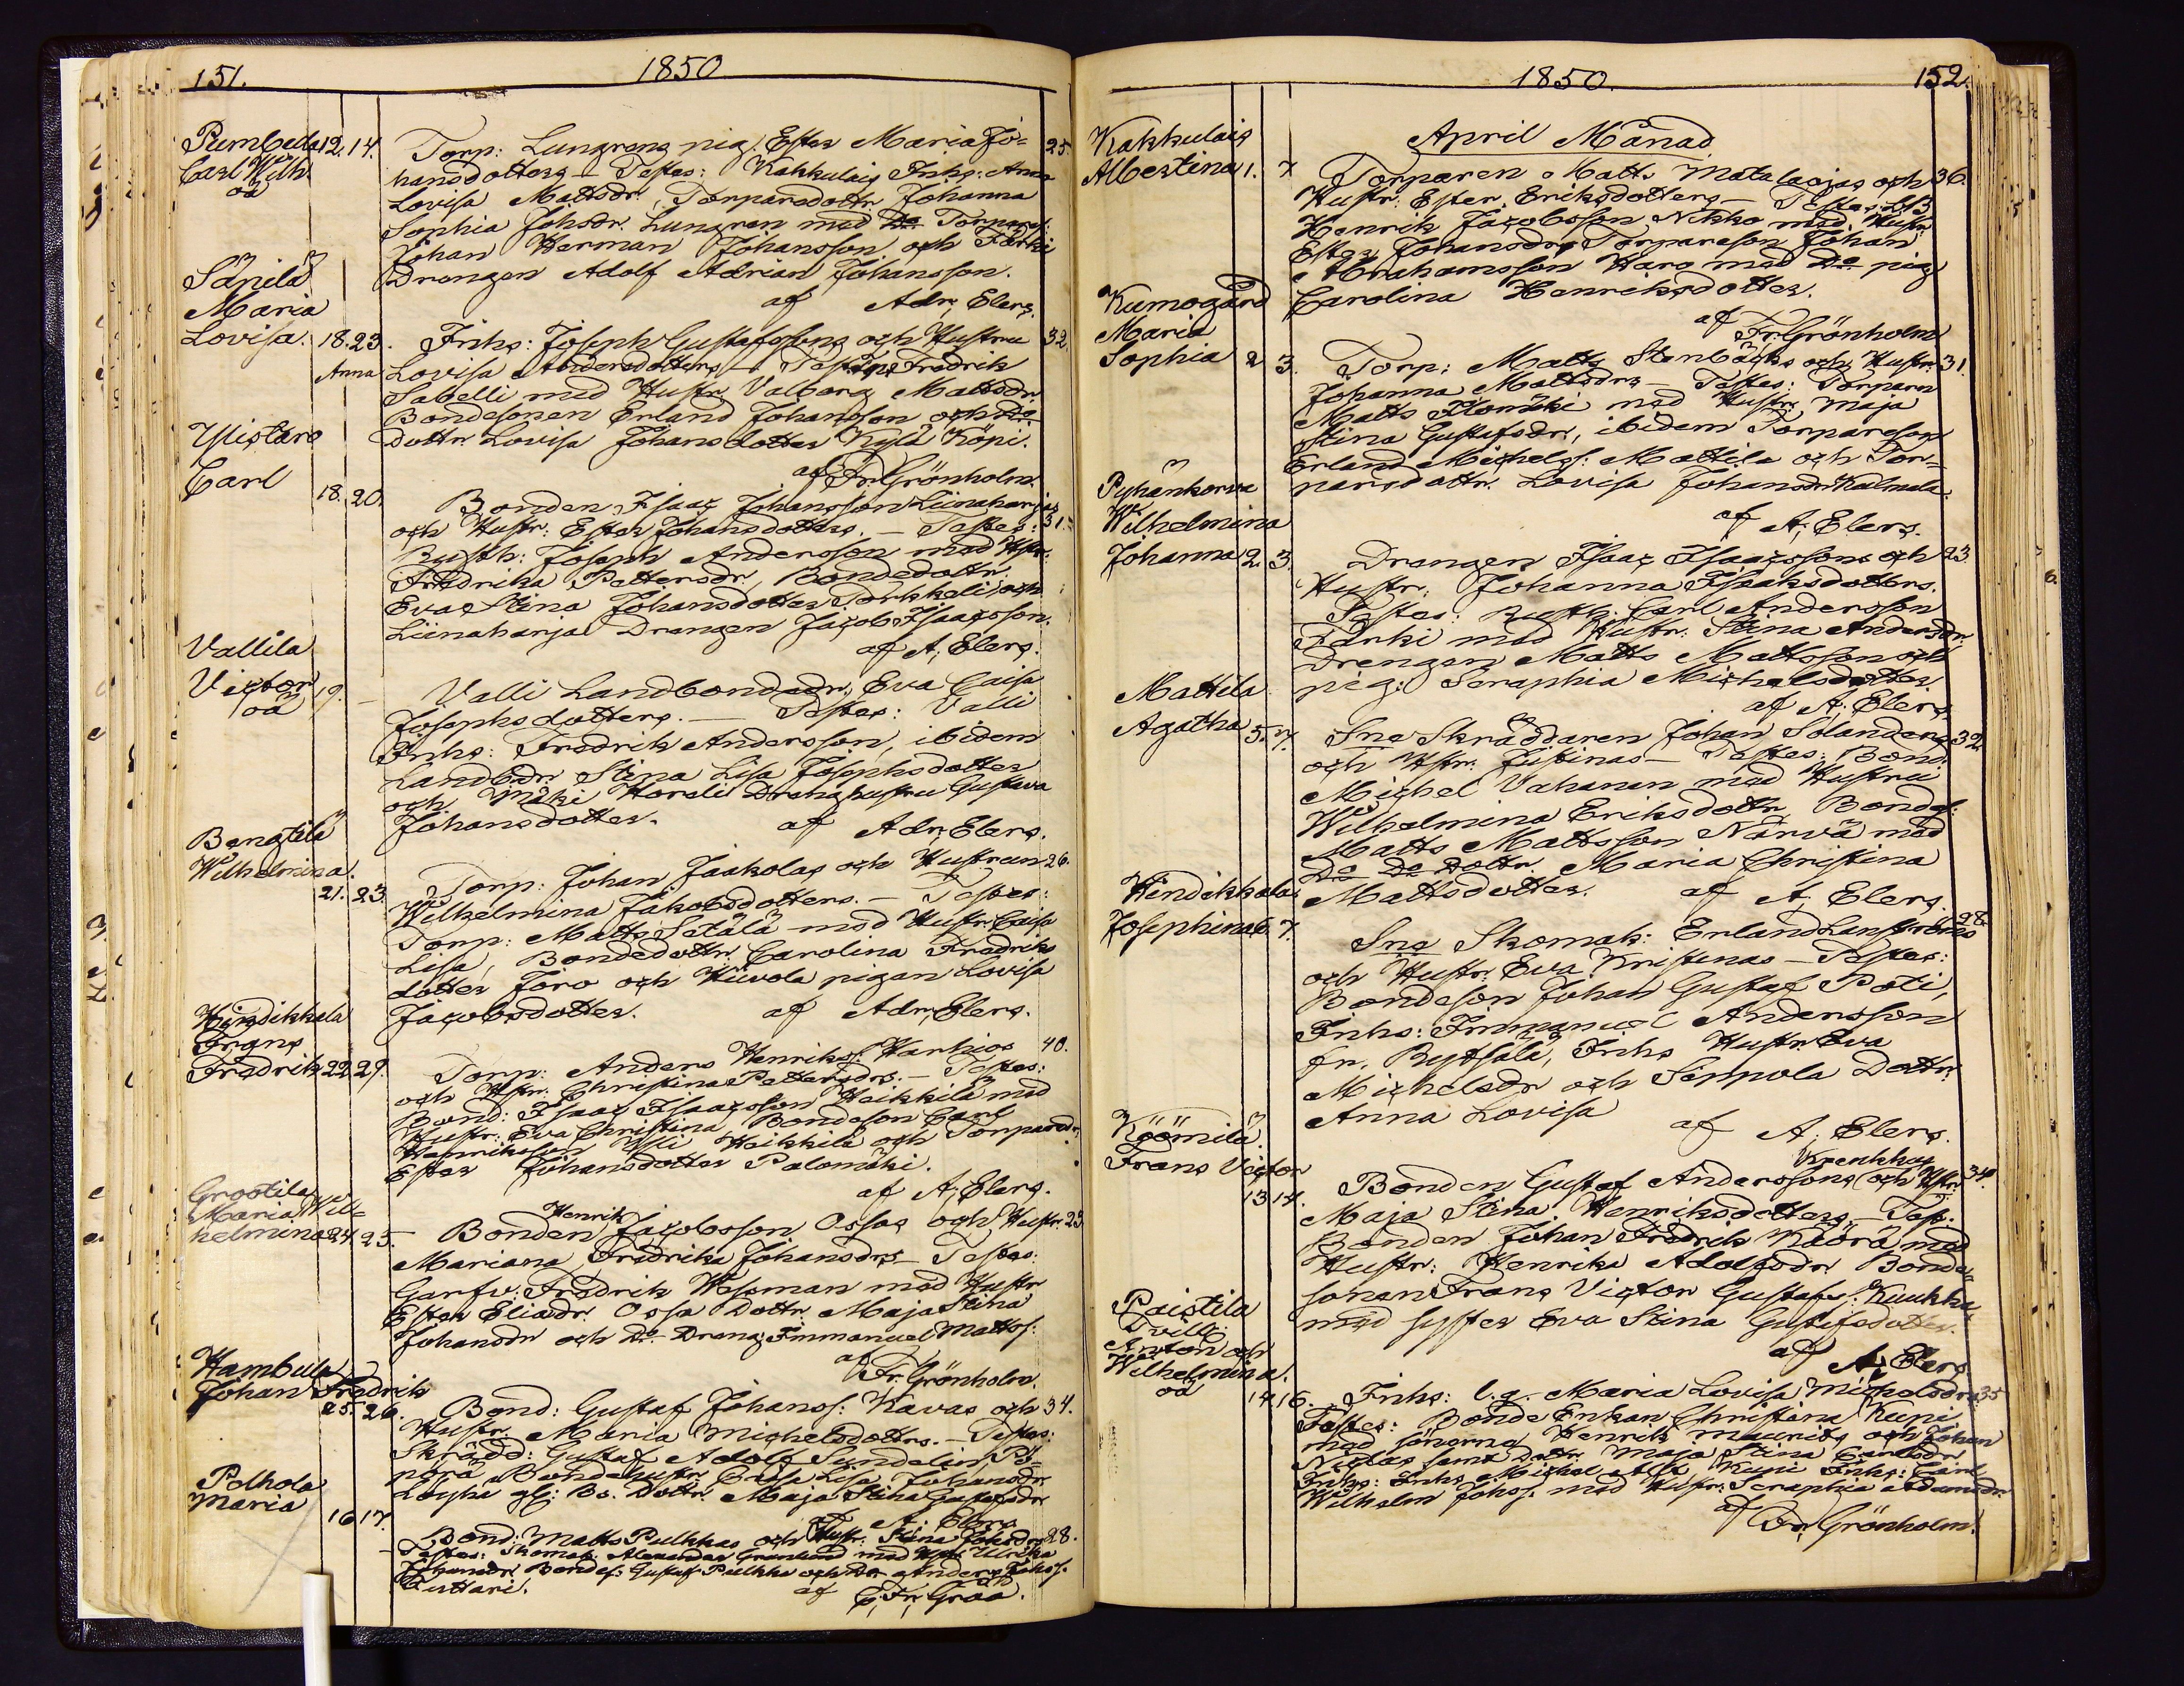 151.
1850
Pumbula 12. 14.
Carl Wilh
oä
Torp: Lungrens pig: Ester Maria Jo= 25.
hansdotters – Testes: Kakkulais Inhs: Anna
Lovisa Mattsdr. Torparedottr Johanna
Sophia Johsdr. Lungren med Do Torpares:
Johan Herman Johansson och Färki
Drängen Adolf Adrian Johansson.
af Adr. Elers.
Sänilä
Maria
Lovisa. 18. 23.
Anna
Inhs: Joseph Gustafssons och Hustru 32.
Lovisa Andersdotters – Testes: Fredrik
Sabelli med Hustr. Valborg Mattsdr.
Bondesonen Erland Johansson och Do
Dottr Lovisa Johansdotter Kylä Köpi.
af Fr. Grönholm.
Ylistaro
Carl 18. 20.
Bonden Isaac Johansson Liinaharjas
och Hustr. Ester Johansdotters. – Testes: 31.
Rusth: Joseph Andersson med Hstr:
Fredrika Pettersdr, Bondedottr
Eva Stina Johansdotter Torkkeli och
Liinaharja Drängen Jacob Isaacsson.
af A. Elers.
Vallila
Victor 19. –
oä
Valli Landbondedr. Eva Caisa
Josephsdotters. – Testes: Valli
Inhs: Fredrik Andersson, ibidem
Landbdr. Stina Lisa Josephsdotter
och Mäki Horeli Drenghustru Gustava
Johansdotter. af Adr. Elers.
Bengtilä
Wilhelmina.
21. 23.
Torp: Johan Jaakolas och Hustrun 26.
Wilhelmina Jakobsdotters. – Testes:
Torp: Matts Setälä med Hustr. Caisa
Lisa, Bondedottr. Carolina Fredriks
dotter Joro och Hiivola pigan Lovisa
Jacobsdotter. af Adr. Elers.
Hindikkala
Frans
Fredrik 22 29.
Torp: Anders Henrikss: Warhios 40.
och Hstr: Christina Pettersdrs: – Testes:
Bond: Isaac Isaacsson Heikkilä med
Hustr: Eva Christina Bondeson Carl
Henriksson Ylli Heikkilä och Torparedr,
Ester Johansdotter Palomäki.
af A. Elers.
Grootila
Maria Wil=
helmina 24. 25.
Henrik
Bonden Jacobsson Ossas och Hustr. 23.
Mariana Fredrika Johansdrs – Testes:
Garfv. Fredrik Wassman med Hustr
Ester Eliædr. Ossa Dottr. Maja Stina
Johansdr och Do Dräng Immanuel Matts:
af Fr. Grönholm.
Hambula
Johan Fredrik
25. 26.
Bond: Gustaf Johanss: Kavas och 34.
Hustr. Maria Michelsdotters. – Testes:
Skrädd: Gustaf Adolf Sundelin Pö=
nörä Bondehustr. Lisa Johansdr
Loyha gl: Bo. Dottr. Maja Stina Gustafsdr
af A. Elers
Polhola
Maria 16 17.
Bond: Matts Pulkkas och Hustr. Stina Johsdrs 28.
Testes: Skomak: Alexander Granlund med Hstr Ulrika
Johansdr Bondes: Gustaf Pulkka och Do Anders Johss.
Puttari. af C. Fr. Graa.
1850.
152.
April Månad
Kakkulais
Albertina 1. 7
Torparen Matts Matalaojas och 36.
Hustr. Ester Eriksdotters – Testes: LB
Henrik Jacobsson Nikko med Hustr
Ester Johansdr, Torpareson Johan
Abrahamsson Waro med Do pig
Carolina Henriksdotter.
af Fr. Grönholm
Kumogård
Maria
Sophia 2 3.
Torp: Matts Stenbäcks och Hustr. 31.
Johanna Mattsdrs – Testes: Torparn
Matts Ilomäki med Hustr Maja
Stina Gustafsdr, ibidem Torpareson
Erland Michelss: Mattila och Tor=
paredottr. Lovisa Johansdr Kalmela.
af A. Elers.
Pyhänkorva
Wilhelmina
Johanna 2. 3.
Drängen Isaac Isaacssons och 23.
Hustr: Johanna Isaaksdotters.
Testes: Rusth: Carl Andersson
Färki med Hustr. Stina Andersdr,
Drängen Matts Mattsson och
pig: Seraphia Michelsdotter.
af A. Elers
Mattila
Agatha 5. 7.
Sne Skräddaren Johan Solanders 32.
och Hstr. Justinas – Testes: Bond.
Michel Vahanen med Hustru
Wilhelmina Eriksdottr. Bondes:
Matts Mattsson Närvä med
Do Do Dottr. Maria Christina
Mattsdotter. af A. Elers.
Hindikkala
Josephina 6. 7.
Sne Skomak: Erland Lenströms 28.
och Hustr. Eva Kristinas – Testes:
Bondeson Johan Gustaf Poti,
Inhs: Immanuel Andersson
fr. Rytsälä, Inhs Hustr. Eva
Michelsdr och Simpola Dottr.
Anna Lovisa
af A. Elers.
Köömilä.
Frans Victor
13 14.
Krenkkus
Bonden Gustaf Anderssons och Hstr. 34.
Maja Stina Henriksdotters – Test:
Bonden Johan Fredrik Kaörä med
Hustr: Henrika Adolfsdr. Bonde=
sonen Frans Victor Gustafs: Kuukka,
med syster Eva Stina Gustafsdotter.
af A. Elers
Paistila
Tvill:
Anton och
Wilhelmina.
oä 14 16.
Inhs: l.g. Maria Lovisa Michelsdrs 35
Testes: Bonde Enkan Christina Kuni
med sönerna Henrik Maurits och Johan
Nicolas samt Dottr Maja Stina Carlsdr
Inhs: Inhs Michel Kuni Inhs: Carl
Wilhelm Johss. med Hstr. Seraphia Adamsdr.
af Fr. Grönholm.